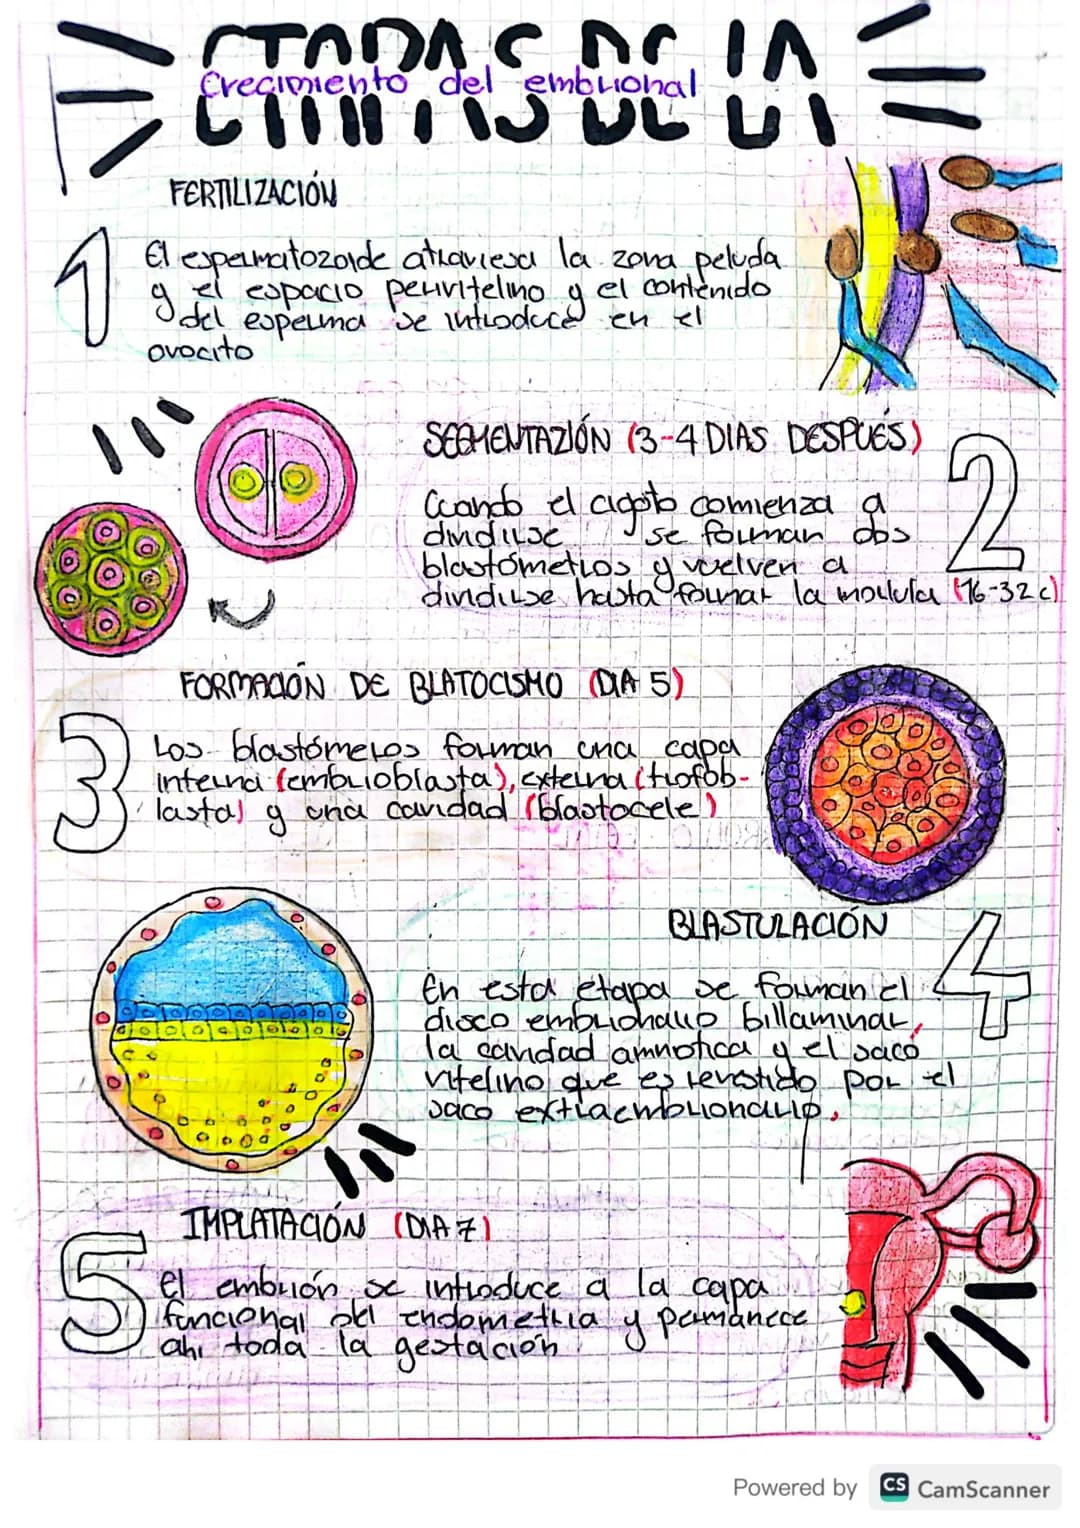 ETAPAS DE LA
Crecimiento del embrional
FERTILIZACIÓN
1
El espermatozoide atraviesa la zona peluda
y el espacio perivitelino y el contenido
del esperma se introduce en el
ovocito
SEGMENTAZIÓN (3-4 DIAS DESPUÉS)
2
Cuando el cigoto comienza a
dividirse se forman dos
blastómetros y vuelven a
dividirse hasta formar la morula (16-32 c)
FORMACIÓN DE BLATOCISMO (DIA 5)
3
Los blastómeros forman una capa
interna (embrioblasta), externa (trofob-
lasta) y una cavidad (blastocele)
BLASTULACIÓN
4
En esta etapa se forman el
disco embrionario billaminar,
la cavidad amnotica y el saco
vitelino que es revestido por el
saco extraembrionario.
IMPLATACIÓN (DIA 7)
5
El embrión se introduce a la capa
funcional del endometria y permanece
ahi toda la gestación.
Powered by CS CamScanner